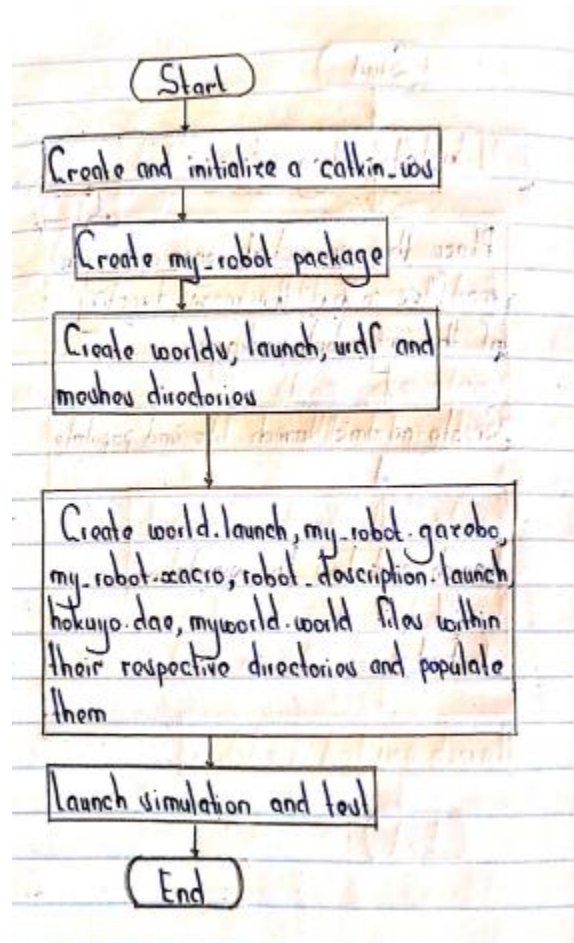 Start
Create and initialize a catkin_ws
Create my_robot package
Create worlds, launch, urdf and
meshes directories
Create world.launch, my_robot.gazebo,
my_robot.xacro, robot_description.launch,
hokuyo.dae, myworld.world files within
their respective directories and populate
them
Launch simulation and test
End